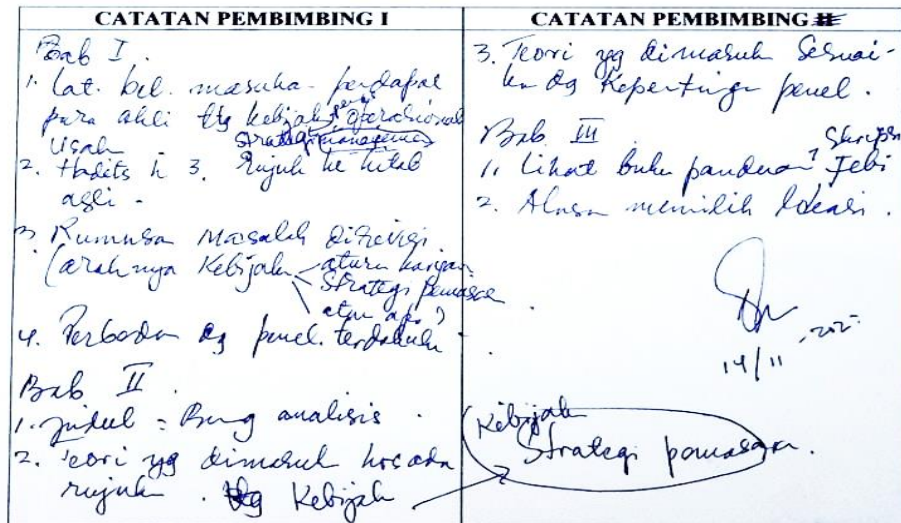 CATATAN PEMBIMBING I
Bab I.
1. Lat. bel. masuka. pendapat
para ahli ttg kebijak operasional
Usah
strategi managemen
2. Hadits h 3. rujuk ke kitab
asli.
3. Rumusan Masalah direvisi.
(arahnya Kebijak aturan karyawan
Strategi pemasar
atau apa?)
4. Perbedan dg penel. terdahulu
Bab II.
1. Judul = Bung analisis.
2. Teori yg dimasuk hrs ada
rujuk. ttg Kebijak
CATATAN PEMBIMBING II
3. Teori yg dimasuk Sesuai-
kn dg Kepentingn penel.
Bab III
1. Lihat buku panduan Skripsi Febi
2. Alasn memilih lokasi.
14/11
Kebijak
Strategi pemasaran.